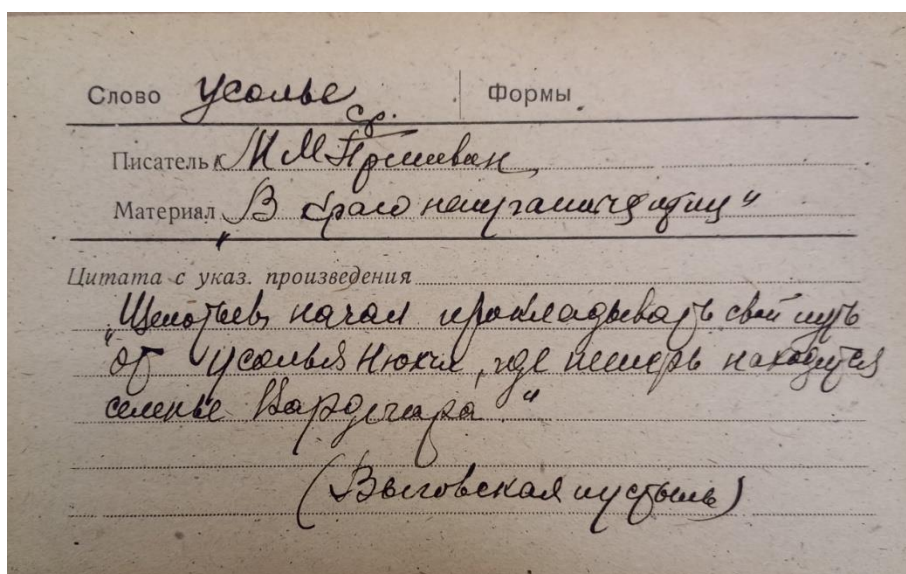 Слово Усолье ср. Формы
Писатель М М Пришвин
Материал „В краю непуганных птиц"
Цитата с указ. произведения
„Щепотьев начал прокладывать свой путь
от Усолья Нюхчи, где теперь находится
селенье Вардегора"
(Выговская пустынь)